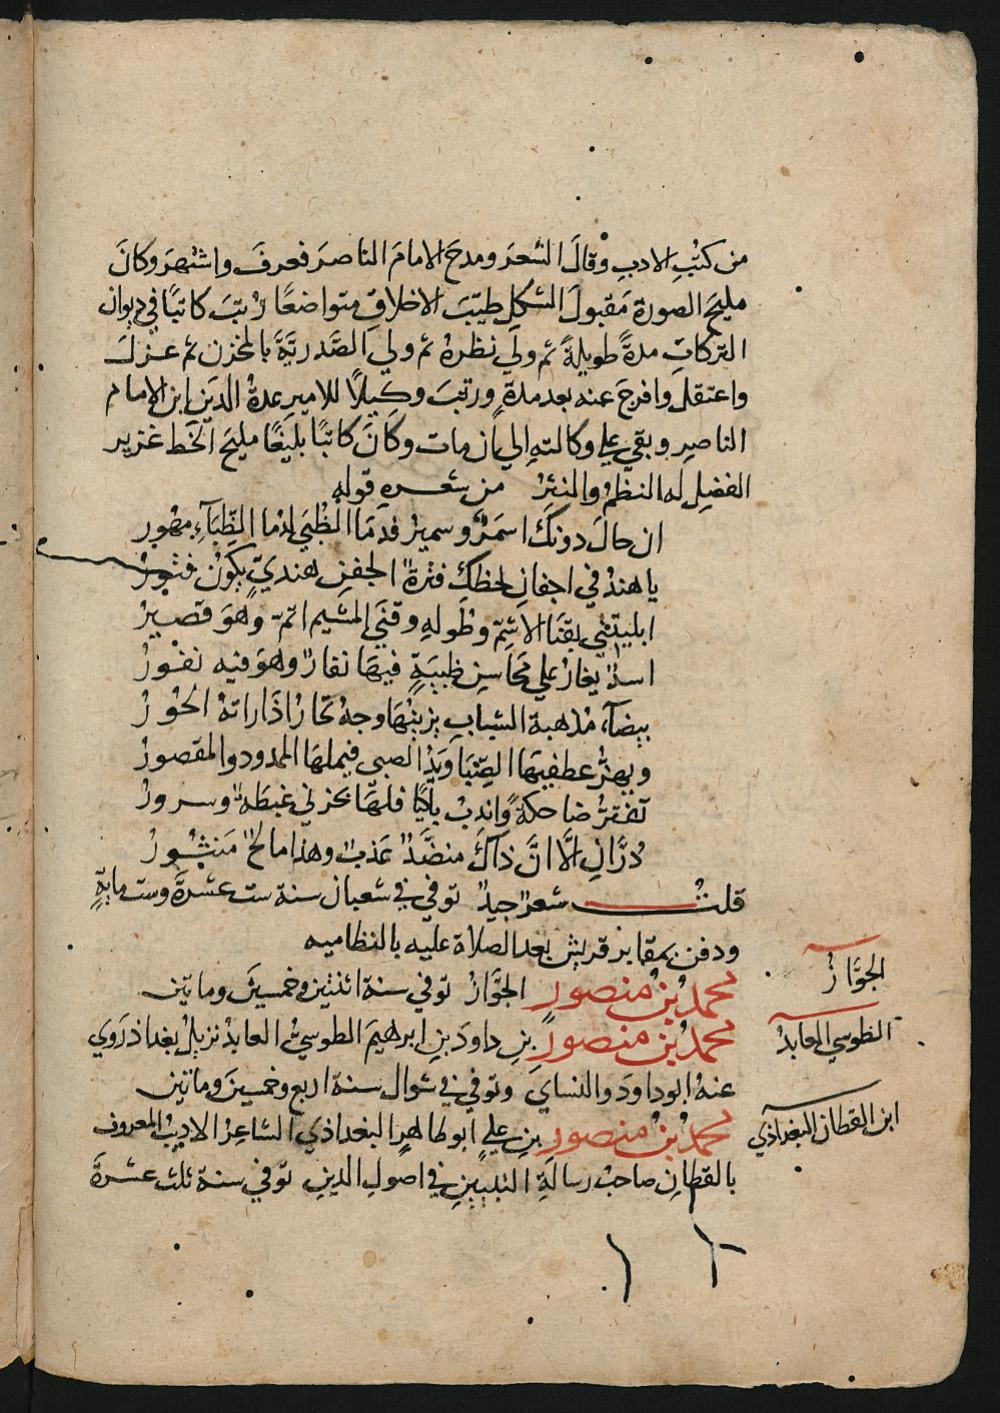 من كتب الادب وقالَ الشعرَ ومدحَ الامامَ الناصرَ فعرفَ واشتهرَ وكانَ
مليحَ الصورة مَقبولَ الشكلِ طيّبَ الاخلاقِ متواضعًا رُتبَ كاتبًا في ديوان
التركاتِ مدةً طويلةً ثم ولي نظرهُ ثم ولي الصَّدريَّةَ بالمخزن ثم عزلَ
واعتقل وافرجَ عنه بعد مدةٍ ورتبَ وكيلًا للاميرِ عدةُ الدين ابن الامام
الناصرِ وبقي علي وكالتهِ الي ان مات وكانَ كاتبًا بليغًا مليحَ الخط غزير
الفضلِ له النظمُ والنثرُ من شعره قوله
ان حالَ دونكَ اسمَرٌ وسميرُ قدمًا الظبي لدُما الظِّبَآءِ مهُور
يا هندُ في اجفانِ لحظكِ فترةٌ الجفنِ هنديٍّ يكونُ فتورُ
ابليتنِي بقنَا الاشمّ وطُولهِ وقنَي المشيم اتمّ وهوَ قصيرُ
اسدٌ يغارُ علي مَحَاسِنِ ظبيةٍ فيهَا نفارٌ وهوَ فيه نفُورُ
بيضآء مُذهبة الشبابِ يزينُهَا وجهُ تحارُ اذَا راتهُ الحُورُ
ويهزُّ عطفيهَا الصِّبَا ويَدُ الصبي فيملهَا الممدودُ والمقصورُ
تفترُّ ضاحكةً واندبُ باكيًا فلهَا بحزني غبطَةٌ وسرورُ
دُرّانِ الَّا انَّ ذاكَ منضَّدٌ عَذبٌ وهذا مالحٌ مَنثُورُ
قلتُ شعرٌ جيدٌ توفي في شعبان سنة ست عشرةَ وست مايةٍ
ودفن بمقابر قريش بعد الصلاة عليه بالنظاميه
الجوَّازُ
محمد بنُ منصورٍ الجوَّازُ توفي سنة اثنتين وخمسينَ وماتين
الطوسي العابدُ
محمد بنُ منصورِ بنِ داودَ بنِ ابرهيمَ الطوسيُّ العابدُ نزيلُ بغداذ رَوي
عنهُ ابو داودَ والنسايُ وتوفي في شوال سنة اربع وخمسينَ وماتين
ابن القطان البغداذي
محمد بنُ منصورِ بنِ عليٍ ابو طاهرٍ البغداذي الشاعرُ الاديبُ المعروف
بالقطانِ صاحبُ رسالةِ التبيينِ في اصولِ الدينِ توفي سنة ثلث عشرةَ